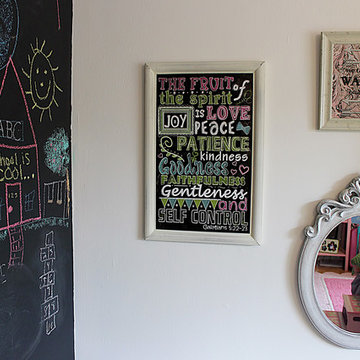 ABC
school is
COOL...
THE FRUIT of
the spirit
is LOVE
JOY
PEACE
PATIENCE
kindness
GOODNESS
FAITHFULNESS
Gentleness
and
SELF CONTROL
Galatians 5:22-23